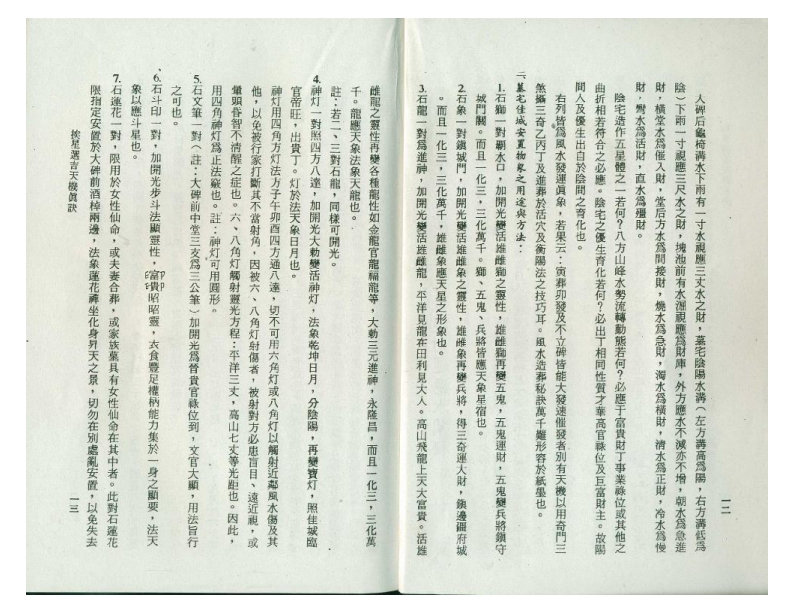 大碑后龜椅溝水下雨有一寸水視應三丈水之財，墓宅陰陽水溝（左方溝高爲陽，右方溝低爲
陰）下雨一寸視應三尺水之財，塊池前有水洲視應爲財庫，外方應水不減亦不增，朝水爲急進
財，橫堂水爲催入財，堂后方水爲間接財，燒水爲急財，濁水爲橫財，清水爲正財，冷水爲慢
財，彎水爲活財，直水爲殭財。
陰宅造作五星體之一若何？八方山峰水勢流轉動態若何？必應于富貴財丁事業祿位或其他之
曲折相若符合之必應。陰宅之優生育化若何？必出丁相同性質才華高官祿位及巨富財主。故陽
間人及優生出自於陰間之育化也。
右列皆爲水部發運真象，若果云：寅葬卯發及不立碑皆能大發速催發者別有天機以用奇門三
煞攝三奇乙丙丁及進葬於活穴及衡陽法之技巧耳。風水造葬秘訣萬千難形容於紙墨也。
二、墓宅佳城安置物象之用途與方法：
1.石獅一對霸水口，加開光變活雄雌獅之靈性，雄雌獅再變五鬼，五鬼運財，五鬼變兵將鎮守
城門關。而且一化三，三化萬千。獅、五鬼、兵將皆應天象星宿也。
2.石象一對鎮城門，加開光變活雄雌象之靈性，雄雌象再變兵將，得三奇運大財，鎮邊疆府城
。而且一化三，三化萬千，雄雌象應天星之形象也。
3.石龍一對爲進神，加開光變活雄雌龍，平洋見龍在田利見大人。高山飛龍上天大富貴。活雄
一二
雌龍之靈性再變各種龍性如金龍官龍福龍等，大勅三元進神，永隆昌，而且一化三，三化萬
千。龍應天象法象天龍也。
註：若二、三對石龍，同樣可開光。
4.神灯一對照四方八達，加開光大勅變活神灯，法象乾坤日月，分陰陽，再變寶灯，照佳城臨
官帝旺，出貴丁。灯於法天象日月也。
神灯用四角方灯法方子午卯酉四方通八達，切不可用六角灯或八角灯以觸射近鄰風水傷及其
他，以免被行家打斷其不當射角，因被六、八角灯射傷者，被射對方必患盲目、遠近視，或
暈頭昏智不清醒之症也。六、八角灯觸射靈光方程：平洋三丈，高山七丈等光距也。因此，
用四角神灯爲正法竅也。註：神灯可用圓形。
5.石文筆一對（註：大碑前中堂三支爲三公筆）加開光爲晉貴官祿位到，文官大顯，用法旨行
之可也。
6.石斗印一對，加開光步斗法顯靈性，富貴昭昭靈，衣食豐足權柄能力集於一身之顯要，法天
象以應斗星也。
7.石蓮花一對，限用於女性仙命，或夫妻合葬，或家族墓具有女性仙命在其中者。此對石蓮花
限指定安置於大碑前酒棹兩邊，法象蓮花褲坐化身昇天之景，切勿在別處亂安置，以免失去
挨星選吉天機眞訣
一三